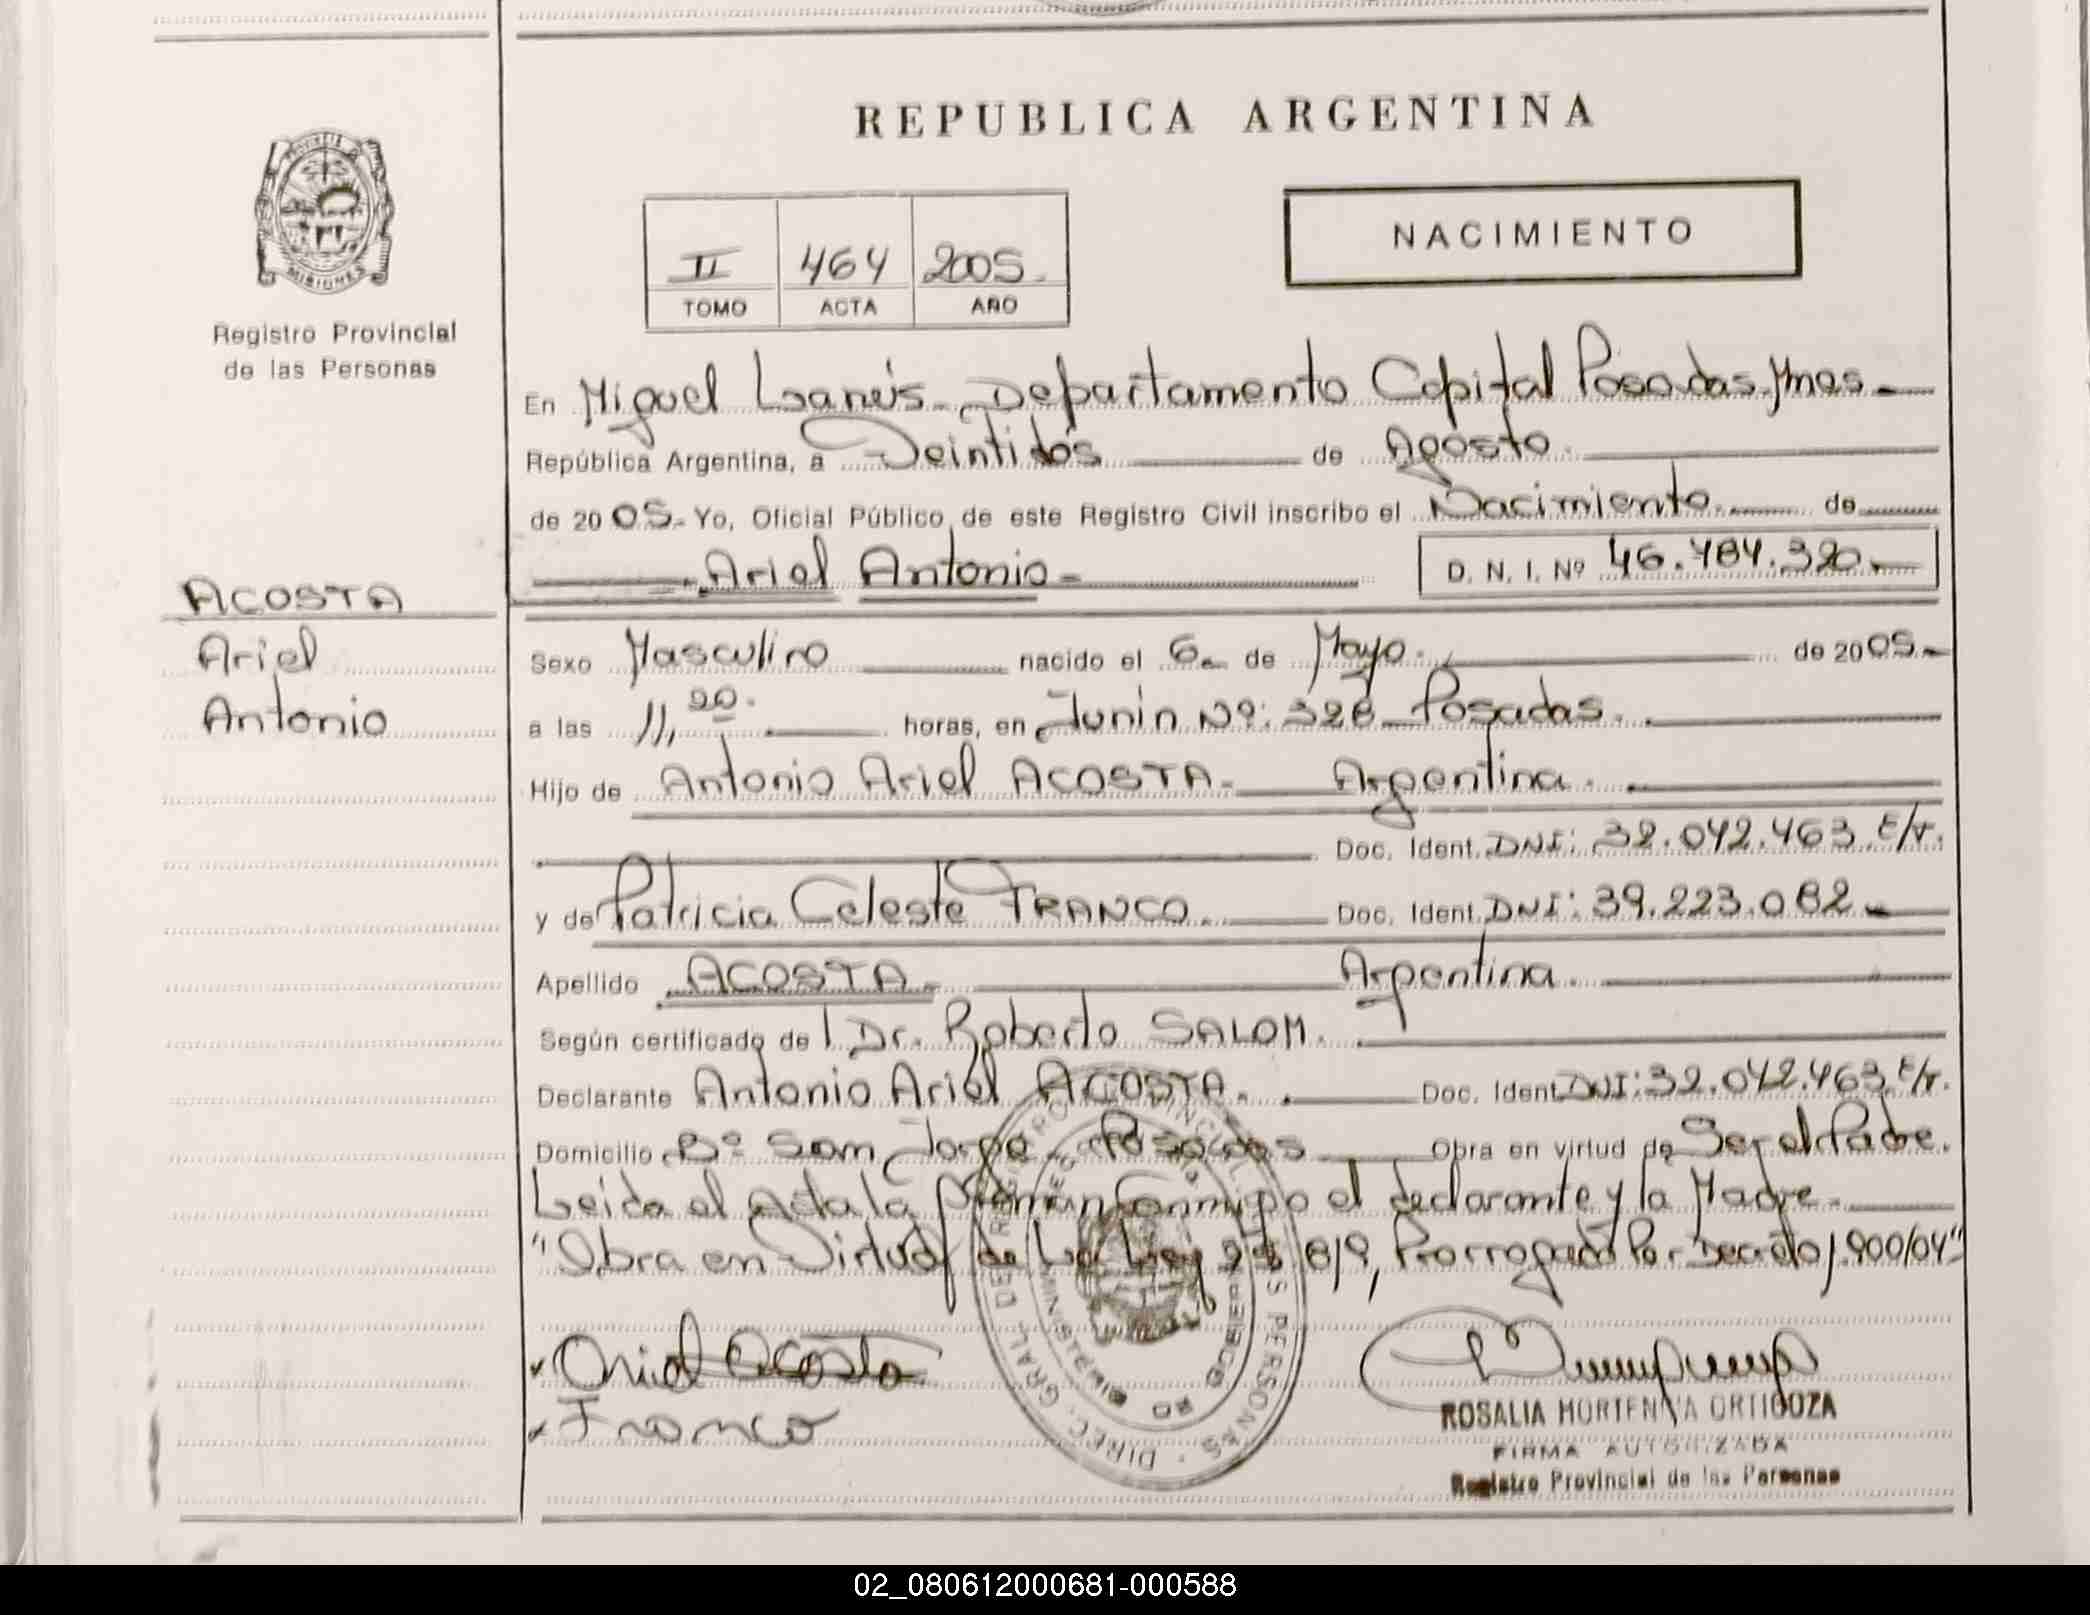 REPUBLICA ARGENTINA
PROVINCIA DE
MISIONES
Registro Provincial
de las Personas
NACIMIENTO
II 464 2005.
TOMO ACTA AÑO
En Miguel Lanús. Departamento Capital Posadas. Mnes.
República Argentina, a Veintidós de Agosto.
de 2005. Yo, Oficial Público de este Registro Civil inscribo el Nacimiento de
Ariel Antonio D. N. I. Nº 46.484.320.
ACOSTA
Ariel
Antonio
Sexo Masculino nacido el 6 de Mayo. de 2005.
a las 11,20. horas, en Junin Nº: 328 Posadas.
Hijo de Antonio Ariel ACOSTA. Argentina.
Doc. Ident. DNI: 32.042.463 E/T.
y de Patricia Celeste FRANCO. Doc. Ident. DNI: 39.223.082
Apellido ACOSTA. Argentina.
Según certificado de Dr. Roberto SALOM.
Declarante Antonio Ariel ACOSTA. Doc. Ident. DNI: 32.042.463 E/T.
Domicilio Bº San Jorge Posadas Obra en virtud de Ser el Padre.
Leida el Acta la firman conmigo el declarante y la Madre.
"Obra en Virtud de La Ley 25.819, Prorrogado Por Decreto 1.900/04"
Ariel Acosta
Franco
ROSALIA HORTENCIA ORTIGOZA
FIRMA AUTORIZADA
Registro Provincial de las Personas
DIREC. GRAL. DE REGISTRO PROVINCIAL DE LAS PERSONAS
02_080612000681-000588